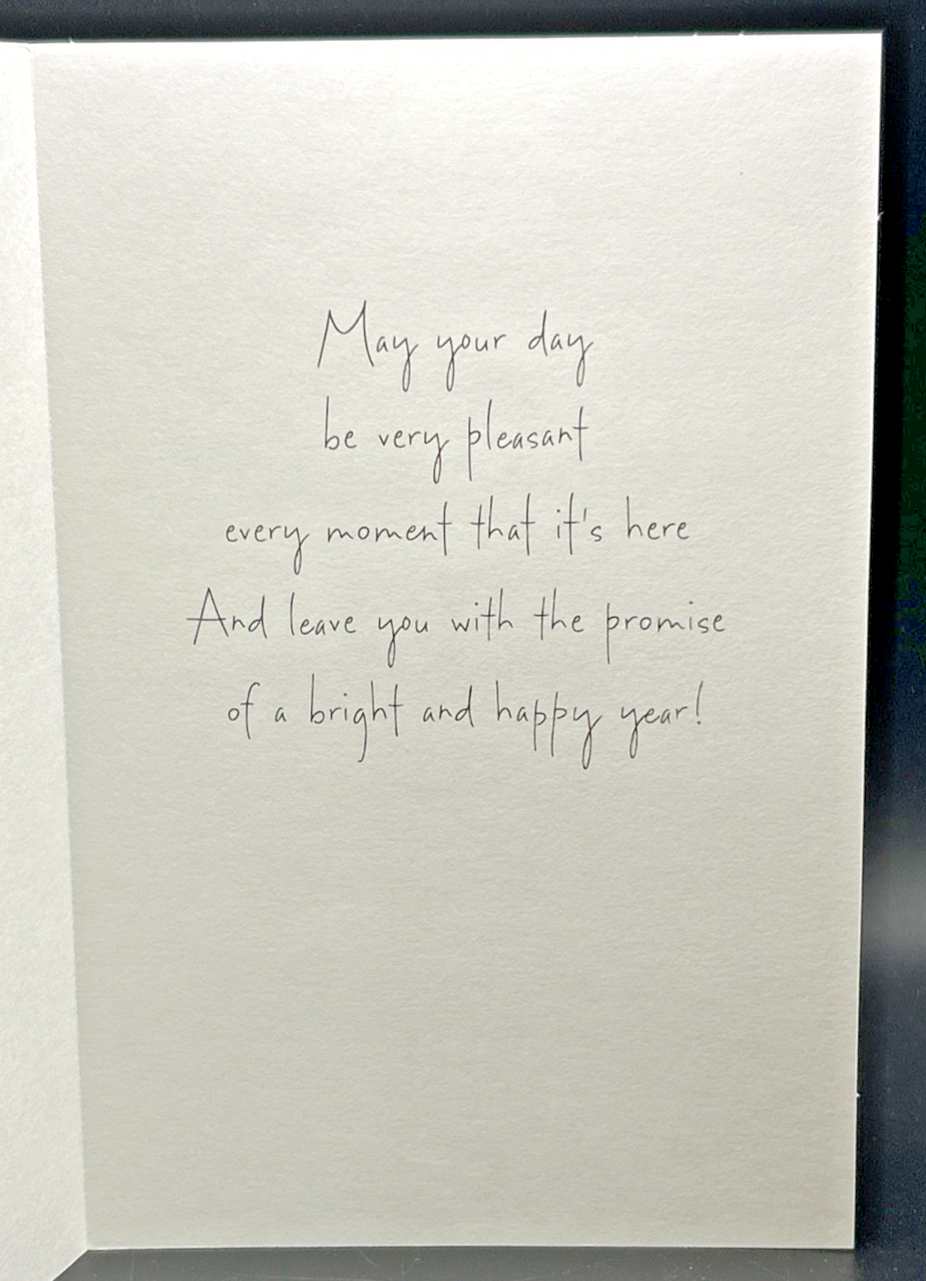 May your day
be very pleasant
every moment that it's here
And leave you with the promise
of a bright and happy year!